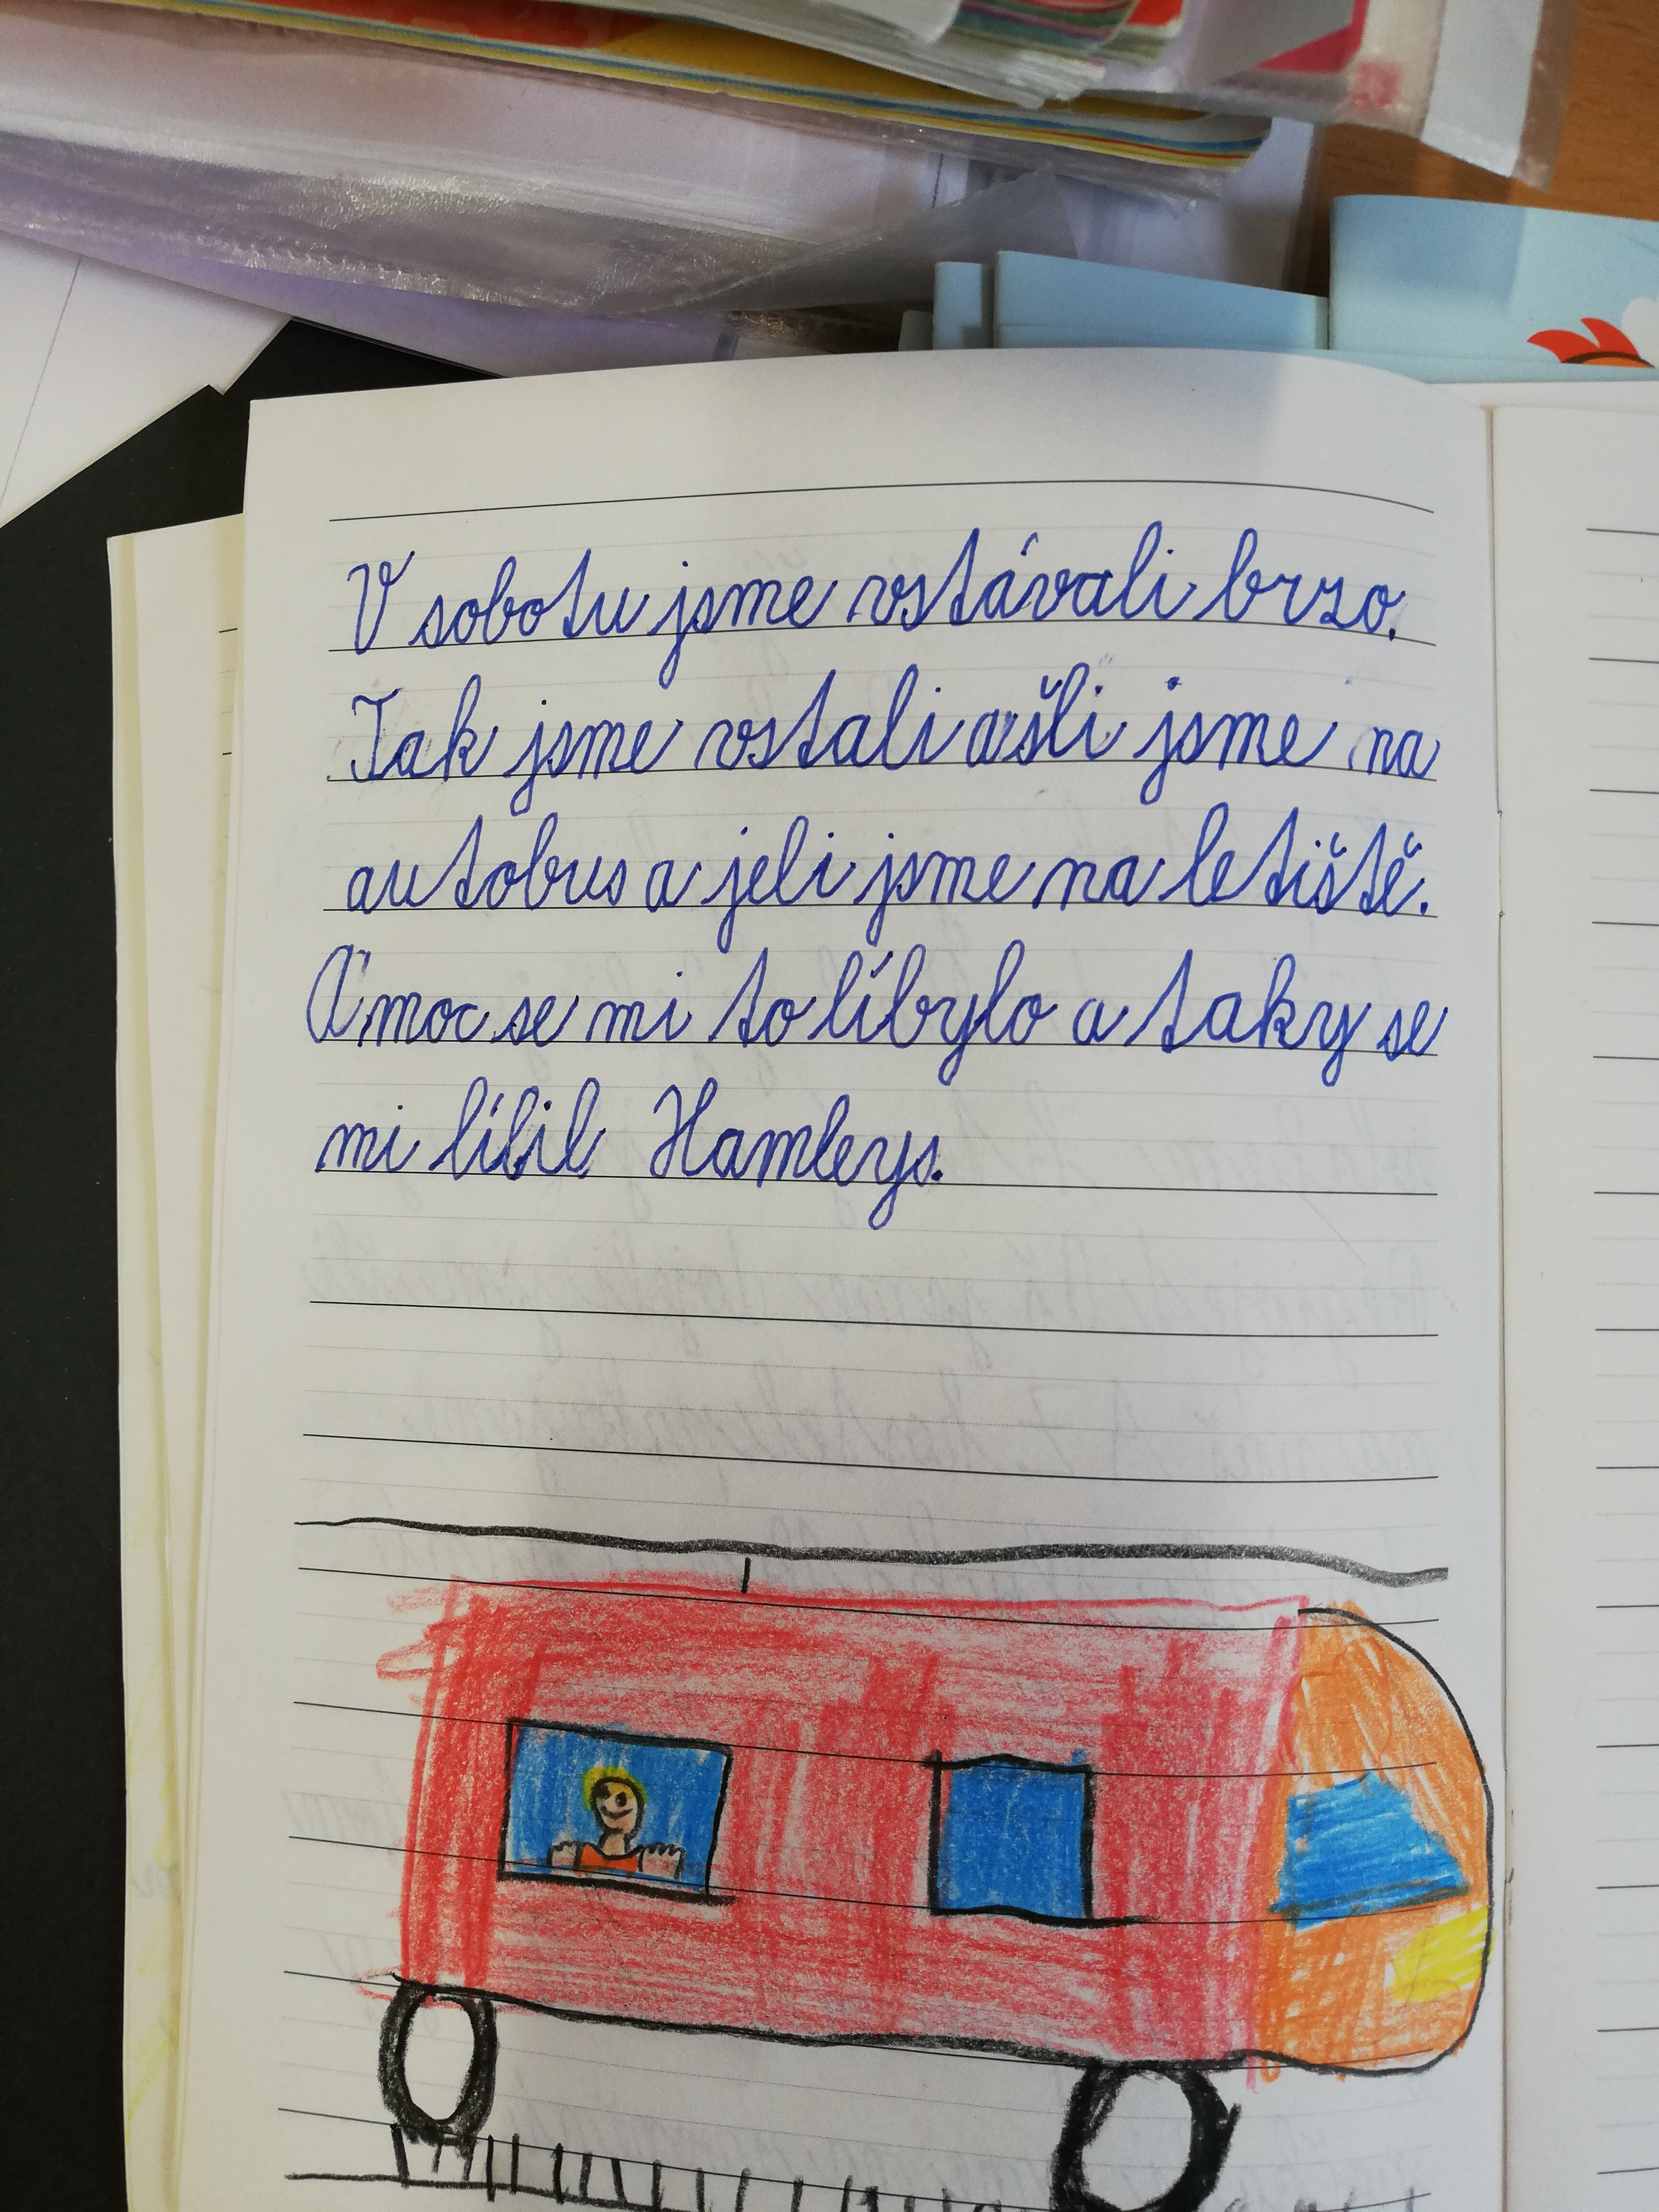 V sobotu jsme vstávali brzo.
Tak jsme vstali a šli jsme na
autobus a jeli jsme na letiště.
A moc se mi to líbylo a taky se
mi líbil Hamleys.